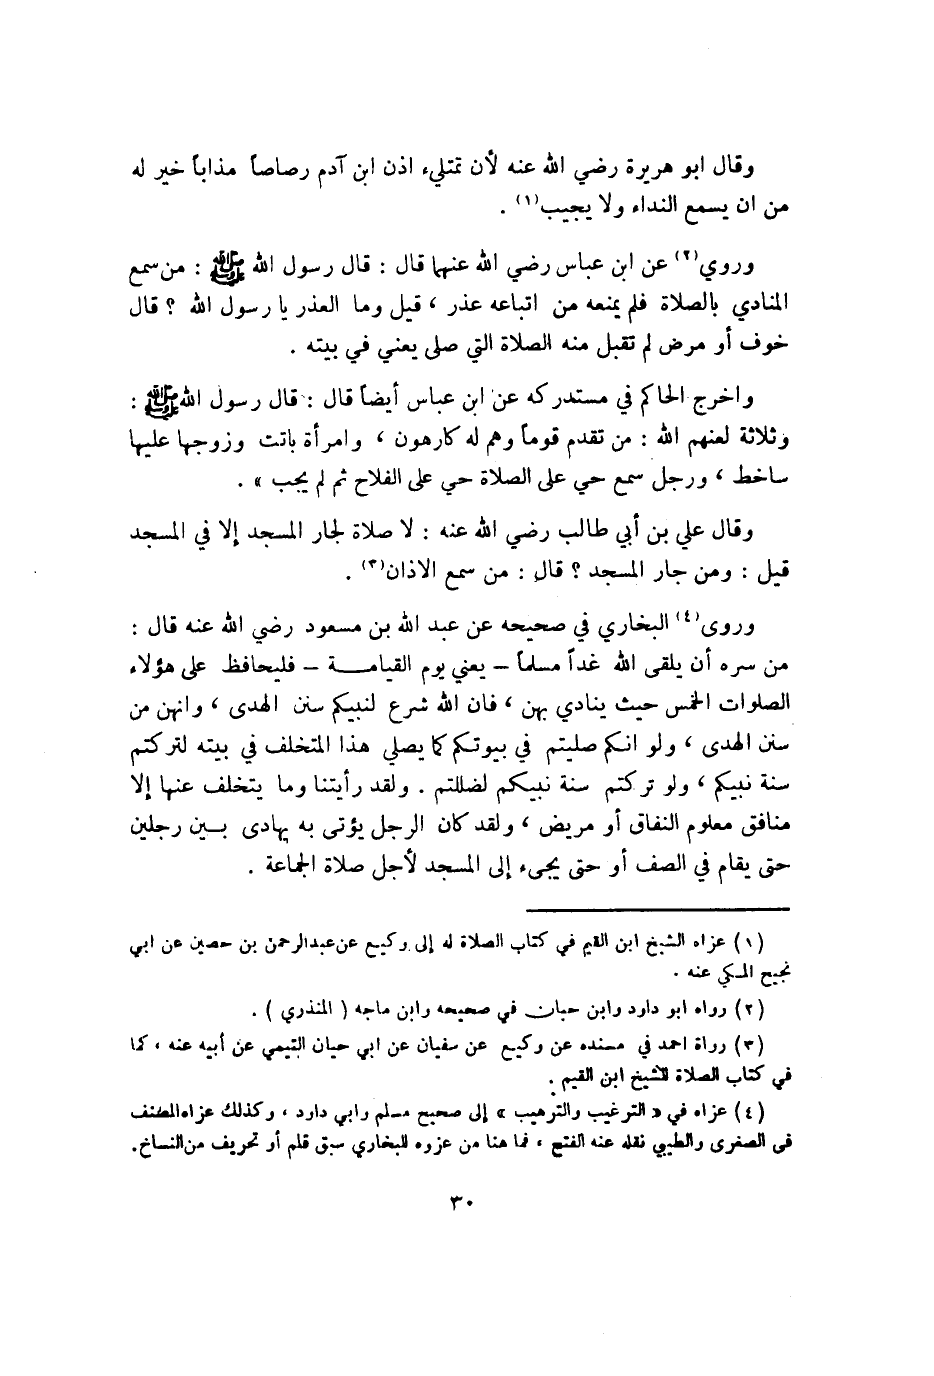 وقال ابو هريرة رضي الله عنه لأن تمتلىء اذن ابن آدم رصاصاً مذاباً خير له
من ان يسمع النداء ولا يجيب(١) .
وروي(٢) عن ابن عباس رضي الله عنهما قال : قال رسول الله ﷺ : من سمع
المنادي بالصلاة فلم يمنعه من اتباعه عذر ، قيل وما العذر يا رسول الله ؟ قال
خوف أو مرض لم تقبل منه الصلاة التي صلى يعني في بيته .
واخرج الحاكم في مستدركه عن ابن عباس أيضاً قال : قال رسول الله ﷺ :
وثلاثة لعنهم الله : من تقدم قوماً وهم له كارهون ، وامرأة باتت وزوجها عليها
ساخط ، ورجل سمع حي على الصلاة حي على الفلاح ثم لم يجب » .
وقال علي بن أبي طالب رضي الله عنه : لا صلاة لجار المسجد إلا في المسجد
قيل : ومن جار المسجد ؟ قال : من سمع الاذان(٣) .
وروى(٤) البخاري في صحيحه عن عبد الله بن مسعود رضي الله عنه قال :
من سره أن يلقى الله غداً مسلماً – يعني يوم القيامة – فليحافظ على هؤلاء
الصلوات الخمس حيث ينادي بهن ، فان الله شرع لنبيكم سنن الهدى ، وانهن من
سنن الهدى ، ولو انكم صليتم في بيوتكم كما يصلي هذا المتخلف في بيته لتركتم
سنة نبيكم ، ولو تركتم سنة نبيكم لضللتم . ولقد رأيتنا وما يتخلف عنها إلا
منافق معلوم النفاق أو مريض ، ولقد كان الرجل يؤتى به يهادى بين رجلين
حتى يقام في الصف أو حتى يجيء إلى المسجد لأجل صلاة الجماعة .
(١) عزاه الشيخ ابن القيم في كتاب الصلاة له إلى وكيع عن عبدالرحمن بن حصين عن ابي
نجيح المكي عنه .
(٢) رواه ابو داود وابن حبان في صحيحه وابن ماجه ( المنذري ) .
(٣) رواة احمد في مسنده عن وكيع عن سفيان عن ابي حيان التيمي عن أبيه عنه ، كما
في كتاب الصلاة للشيخ ابن القيم .
(٤) عزاه في « الترغيب والترهيب » إلى صحيح مسلم وابي داود ، وكذلك عزاه المصنف
في الصغرى والطيبي نقله عنه الفتح ، فما هنا من عزوه للبخاري سبق قلم أو تحريف من النساخ.
٣٠